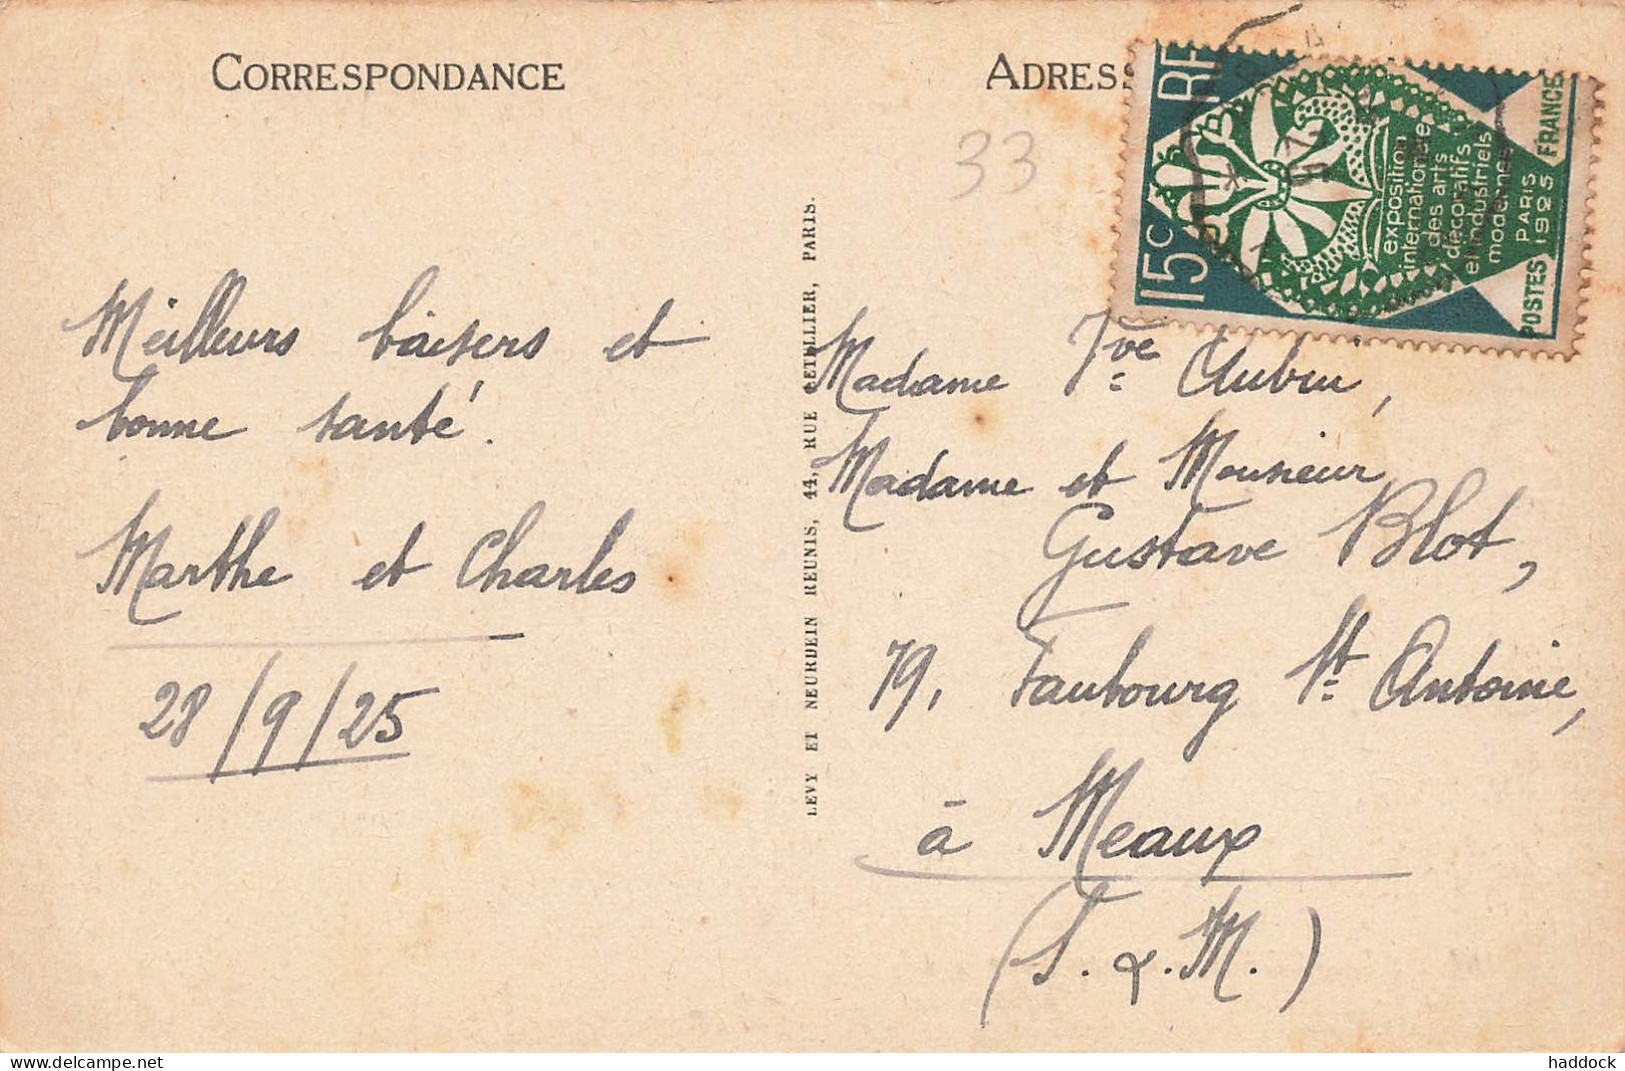 CORRESPONDANCE
Meilleurs baisers et
bonne santé.
Marthe et Charles
28/9/25
LEVY ET NEURDEIN REUNIS, 44, RUE LETELLIER, PARIS.
ADRESS
33
RF
15c
exposition
internationale
des arts
décoratifs
et industriels
modernes
PARIS
1925
POSTES FRANCE
Madame Vve Aubin,
Madame et Monsieur
Gustave Blot,
79, Faubourg St Antoine,
à Meaux
(S. & M.)
haddock